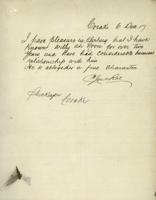 Coraki 6 Dec
I have pleasure in stating that I have
known Willy ah Voon for over two
years and have had considerable business
relationship with him
He is altogether a fine character
Coraki